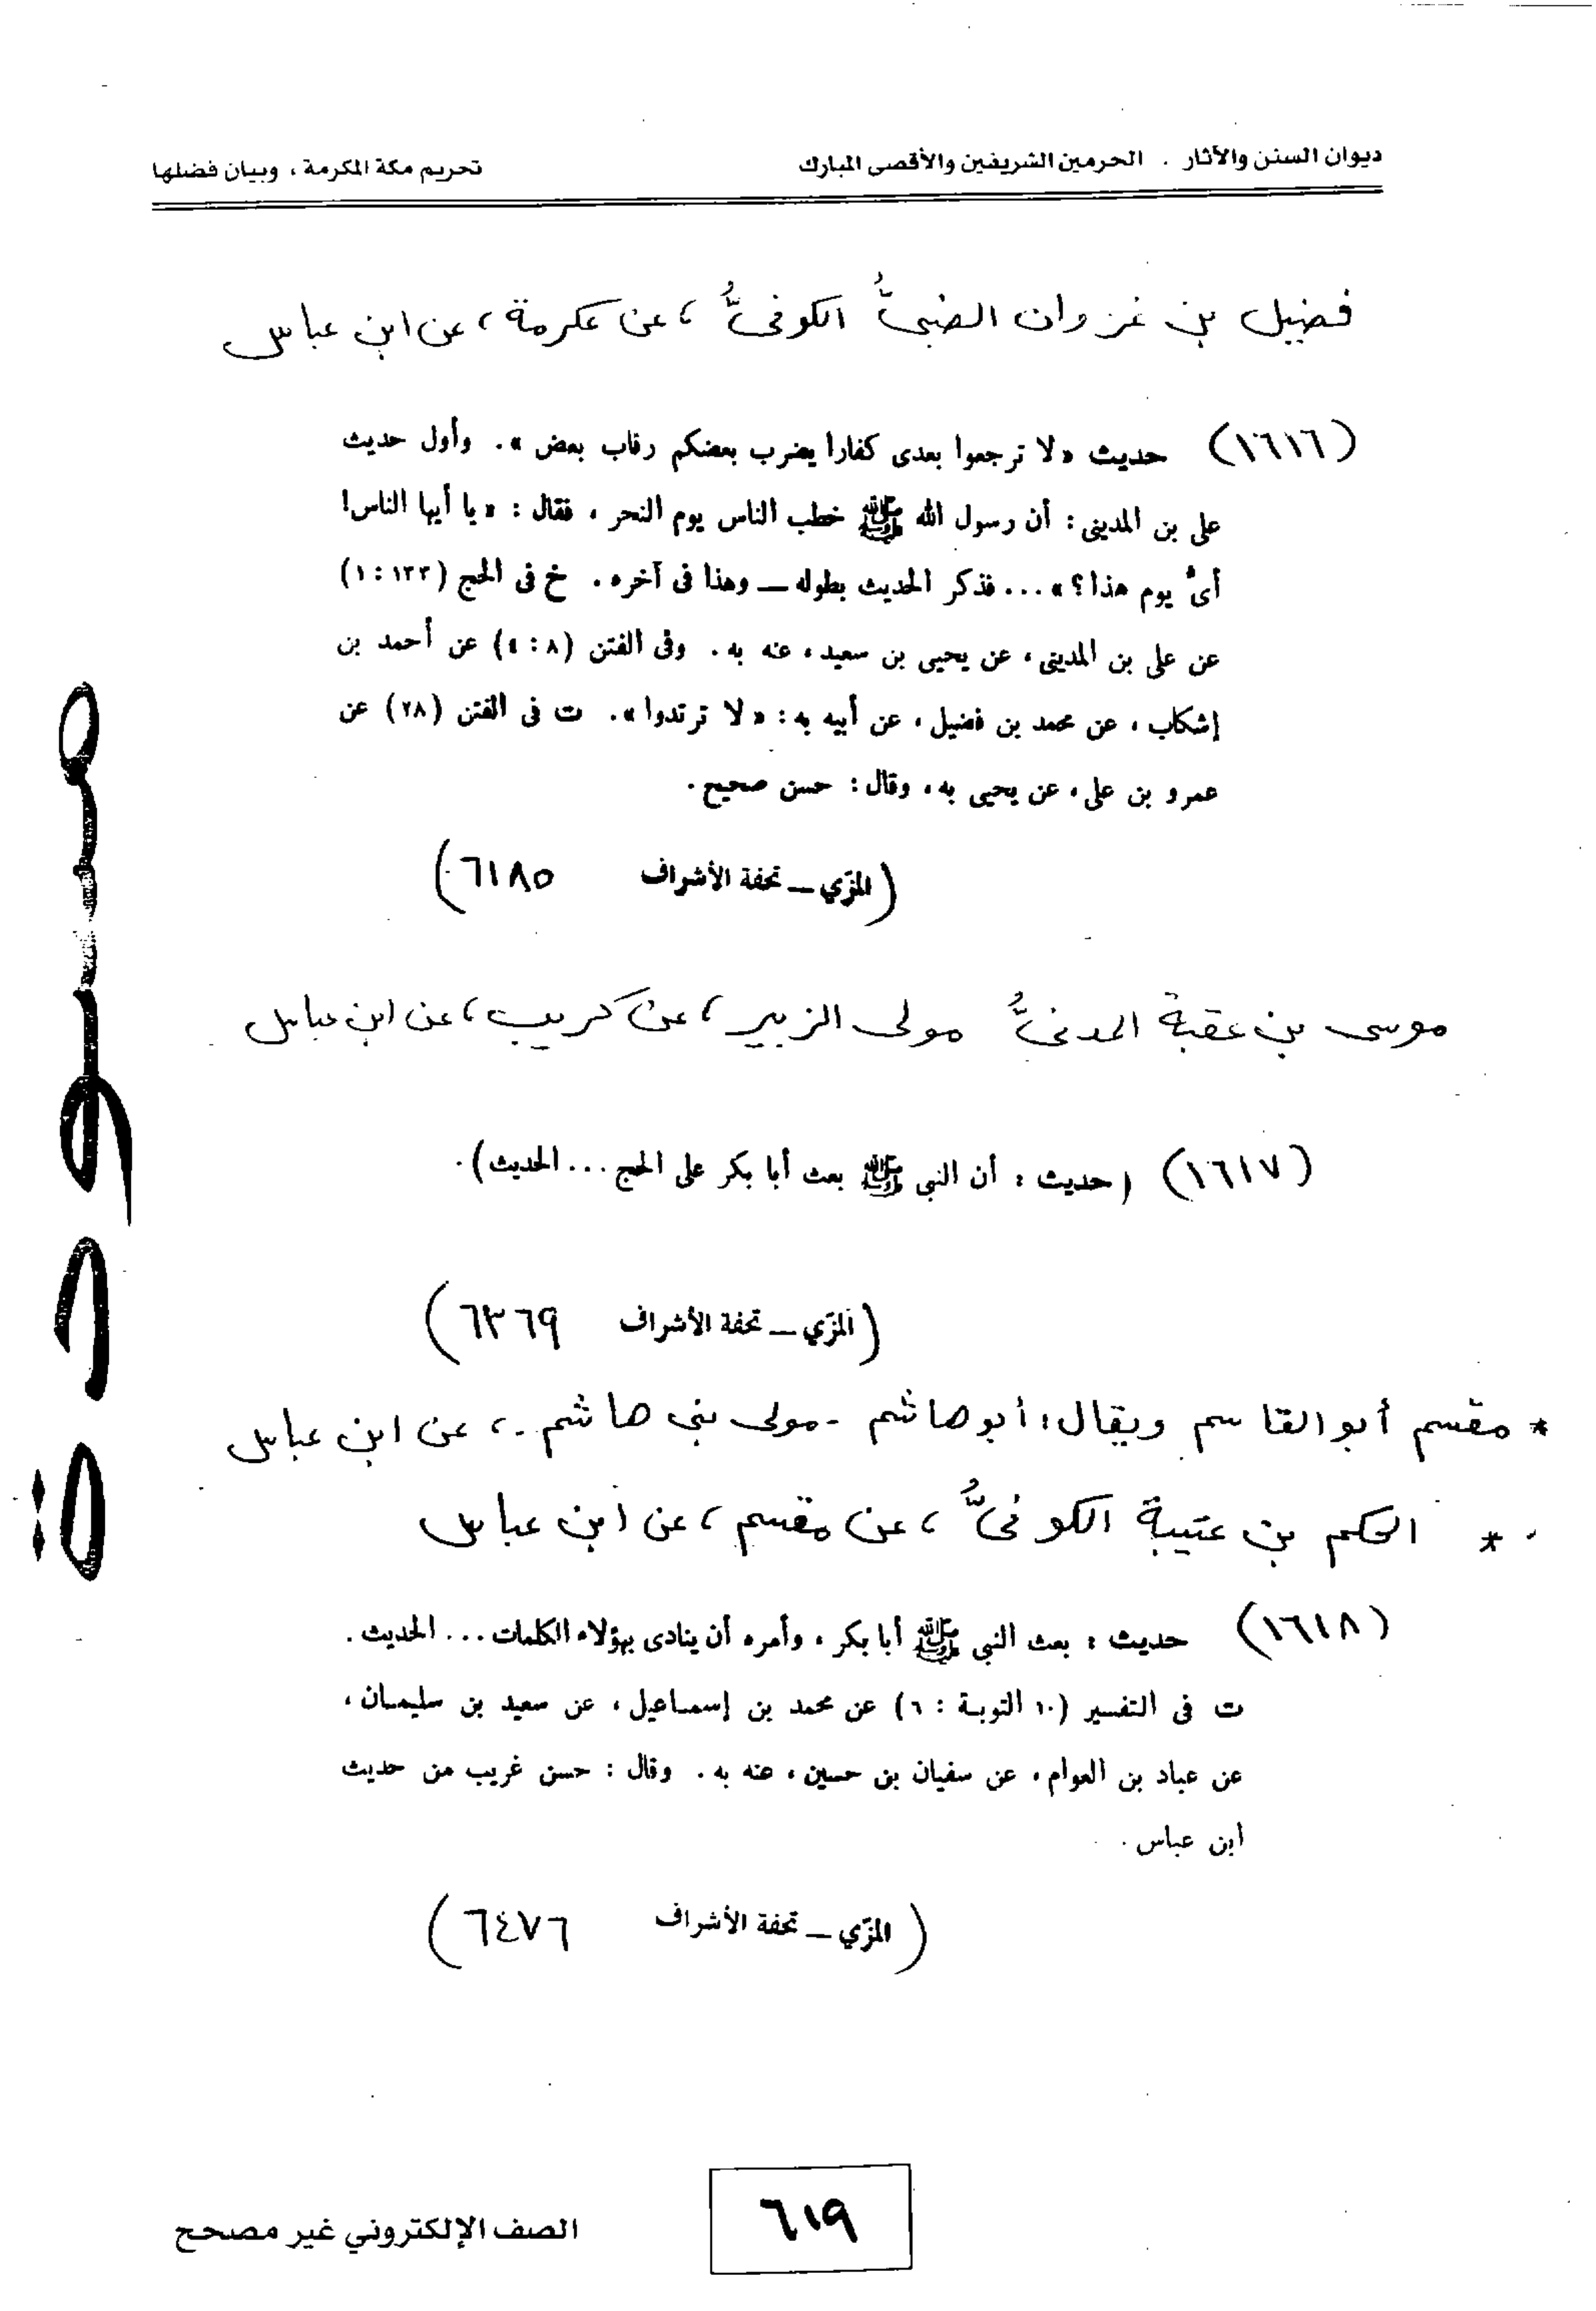 ديوان السنن والآثار . الحرمين الشريفين والأقصى المبارك
تحريم مكة المكرمة ، وبيان فضلها
فضيل بن غزوان الضبيُّ الكوفيُّ ، عن عكرمة ، عن ابن عباس
(١٦١٦) حديث « لا ترجعوا بعدى كفارا يضرب بعضكم رقاب بعض » . وأول حديث
على بن المدينى : أن رسول الله ﷺ خطب الناس يوم النحر ، فقال : « يا أيها الناس !
أىُّ يوم هذا ؟ » ... فذكر الحديث بطوله ــ وهذا فى آخره . خ فى الحج (١٣٣ : ١)
عن على بن المدينى ، عن يحيى بن سعيد ، عنه به . وفى الفتن (٨ : ٤) عن أحمد بن
إشكاب ، عن محمد بن فضيل ، عن أبيه به : « لا ترتدوا » . ت فى الفتن (٢٨) عن
عمرو بن على ، عن يحيى به ، وقال : حسن صحيح .
(المزّي ــ تحفة الأشراف ٦١٨٥)
موسى بن عقبة المدنيُّ مولى الزبير ، عن كريب ، عن ابن عباس
(١٦١٧) ( حديث : أن النبى ﷺ بعث أبا بكر على الحج ... الحديث ) .
(المزّي ــ تحفة الأشراف ٦٣٦٩)
* مقسم أبو القاسم ويقال : أبو هاشم - مولى بني هاشم - ، عن ابن عباس
* الحكم بن عتيبة الكوفيُّ ، عن مقسم ، عن ابن عباس
(١٦١٨) حديث : بعث النبى ﷺ أبا بكر ، وأمره أن ينادى بهؤلاء الكلمات ... الحديث .
ت فى التفسير (١٠ التوبـة : ٦) عن محمد بن إسماعيل ، عن سعيد بن سليمـان ،
عن عباد بن العوام ، عن سفيان بن حسين ، عنه به . وقال : حسن غريب من حديث
ابن عباس .
(المزّي ــ تحفة الأشراف ٦٤٧٦)
مسودة
٦١٩
الصف الإلكتروني غير مصحح